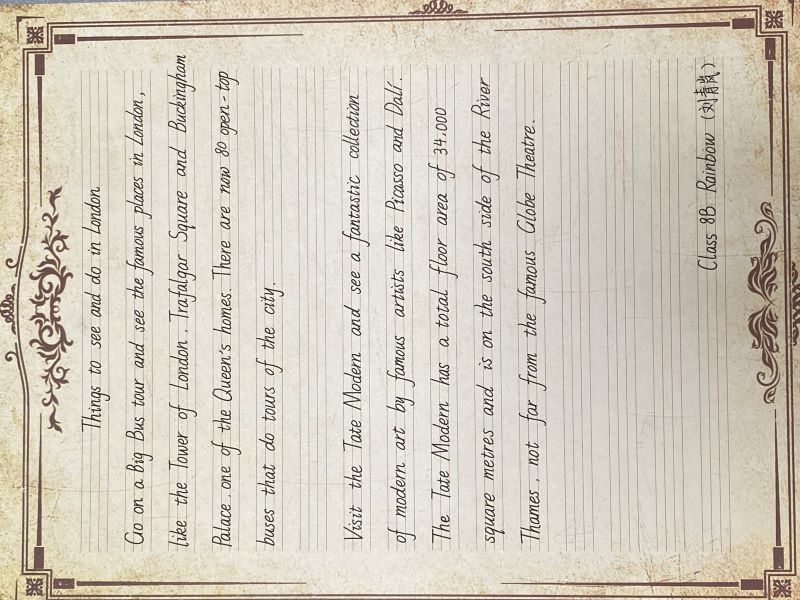 Things to see and do in London
Go on a Big Bus tour and see the famous places in London,
like the Tower of London, Trafalgar Square and Buckingham
Palace, one of the Queen's homes. There are now 80 open-top
buses that do tours of the city.
Visit the Tate Modern and see a fantastic collection
of modern art by famous artists like Picasso and Dalí.
The Tate Modern has a total floor area of 34.000
square metres and is on the south side of the River
Thames, not far from the famous Globe Theatre.
Class 8B Rainbow (刘青岚)